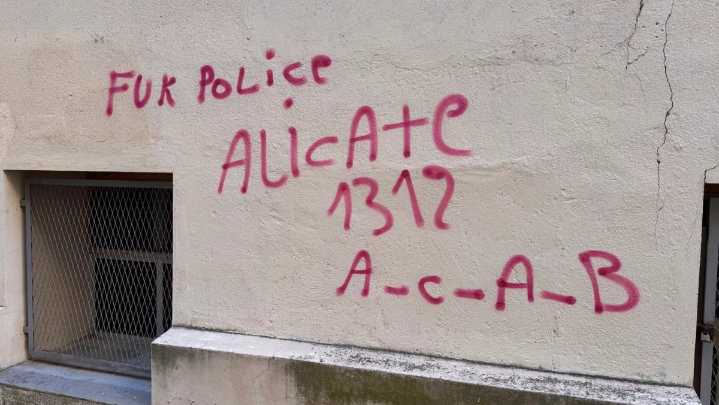 FUK POLICE
ALICATE
1312
A_C_A_B